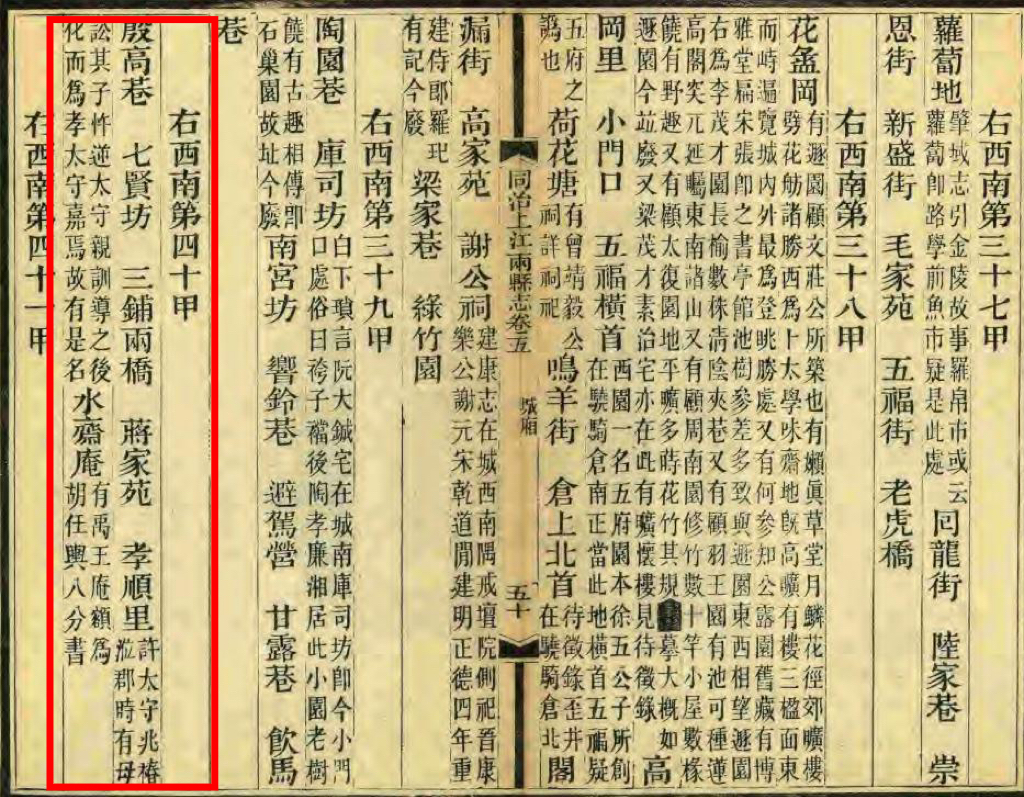 右西南第三十七甲
蘿蔔地
肇域志引金陵故事羅帛市或云
蘿蔔卽路學前魚市疑是此處
囘龍街 陸家巷 崇
恩街 新盛街 毛家苑 五福街 老虎橋
右西南第三十八甲
花盝岡
有遯園顧文莊公所築也有嬾眞草堂月鱗花徑郊曠樓
劈花舫諸勝西爲上太學味齋地旣高曠有樓三楹面東
而峙遍覽城內外最爲登眺勝處又有何參知公露園舊藏有博
雅堂扁宋張卽之書亭館池樹參差多致與遯園東西相望遯園
右爲李茂才園長榆數株淸陰夾巷又有顧羽王園有池可種蓮
高閣突兀延矚東南諸山又有顧周南園修竹數十竿小屋數椽
饒有野趣又有顧太復園地平曠多蒔花竹其規摹大概如
遯園今竝廢又梁茂才素治宅亦在此有曠懷樓見待徵錄
高
岡里 小門口 五福橫首
西園一名五府園本徐五公子所創
在驍騎倉南正當此地橫首五福疑
五府之
譌也
荷花塘
有曾靖毅公
祠詳祠祀
鳴羊街 倉上北首
待徵錄歪井
在驍騎倉北
閣
同治上江兩縣志卷五 城廂 五十
漏街 高家苑 謝公祠
建康志在城西南隅戒壇院側祀晉康
樂公謝元宋乾道閒建明正德四年重
建侍郎羅玘
有記今廢
梁家巷 綠竹園
右西南第三十九甲
陶園巷 庫司坊
白下瑣言阮大鋮宅在城南庫司坊卽今小門
口處俗曰袴子襠後陶孝廉湘居此小園老樹
饒有古趣相傳卽
石巢園故址今廢
南宮坊 響鈴巷 避駕營 甘露巷 飮馬
巷
右西南第四十甲
殷高巷 七賢坊 三鋪兩橋 蔣家苑 孝順里
許太守兆椿
涖郡時有母
訟其子忤逆太守親訓導之後
化而爲孝太守嘉焉故有是名
水齋庵
有禹王庵額爲
胡任輿八分書
右西南第四十一甲